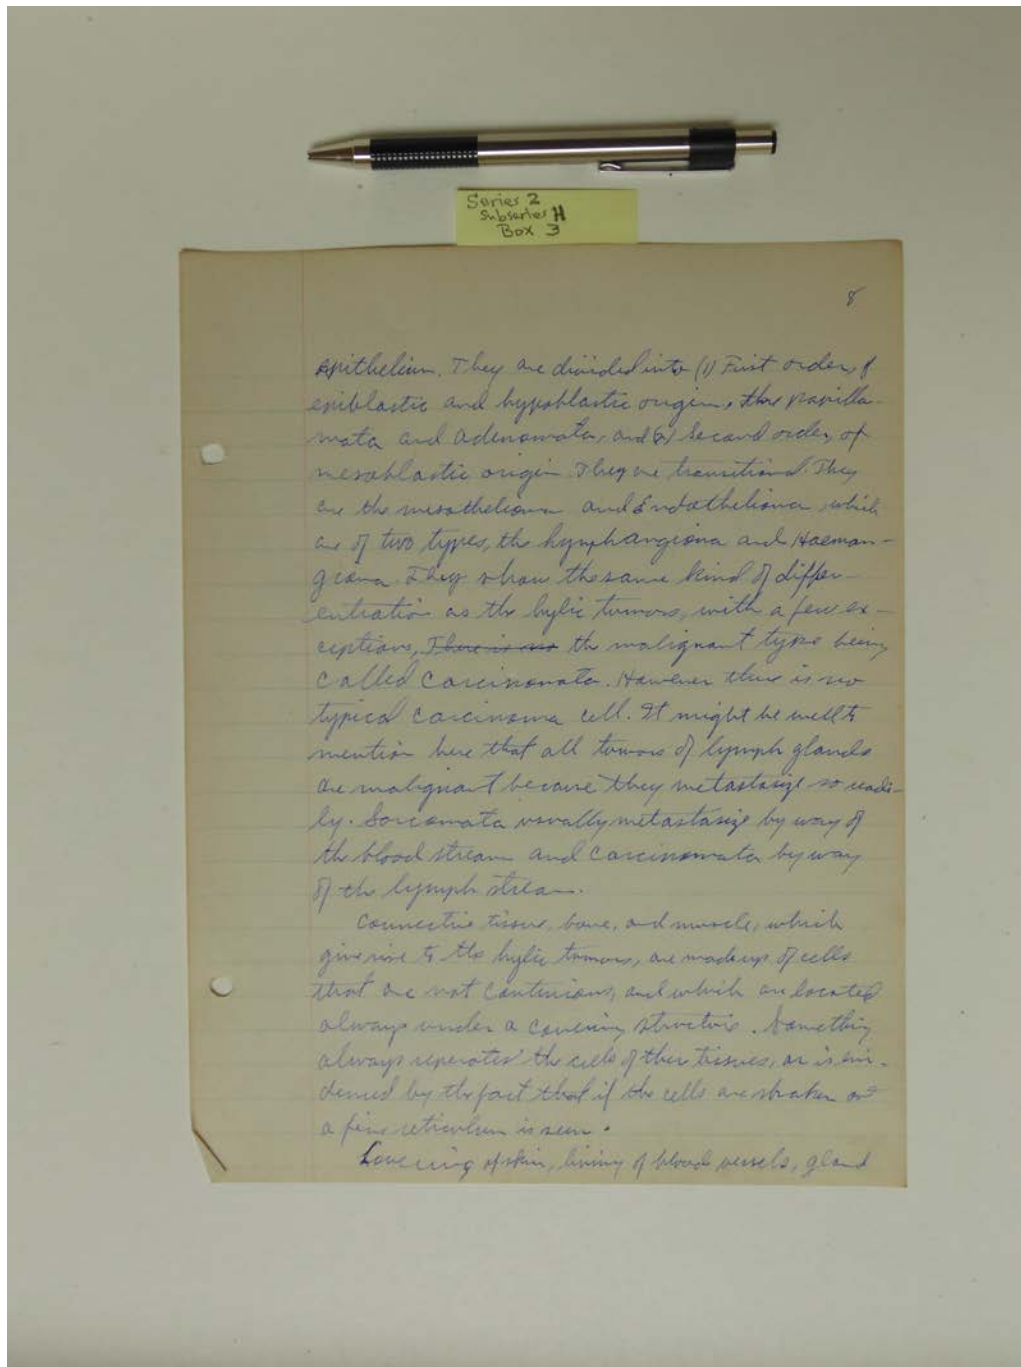 Series 2
Subseries H
Box 3
8
epithelium. They are divided into (1) First order, of
epiblastic and hypoblastic origin, the papillo-
mata and adenomata, and (2) Second order, of
mesoblastic origin. They are transitional. They
are the mesothelioma and Endothelioma, which
are of two types, the lymphangioma and Haeman-
gioma. They show the same kind of differ-
entiation as the hylic tumors, with a few ex-
ceptions, There is no the malignant type being
called carcinomata. However there is no
typical carcinoma cell. It might be well to
mention here that all tumors of lymph glands
are malignant because they metastasize so readi-
ly. Sarcomata usually metastasize by way of
the blood stream and carcinomata by way
of the lymph stream.
Connective tissue, bone, and muscle, which
give rise to the hylic tumors, are made up of cells
that are not continuous, and which are located
always under a covering structure. Something
always seperates the cells of these tissues, as is evi-
denced by the fact that if the cells are shaken out
a fine reticulum is seen.
Covering of skin, lining of blood vessels, gland